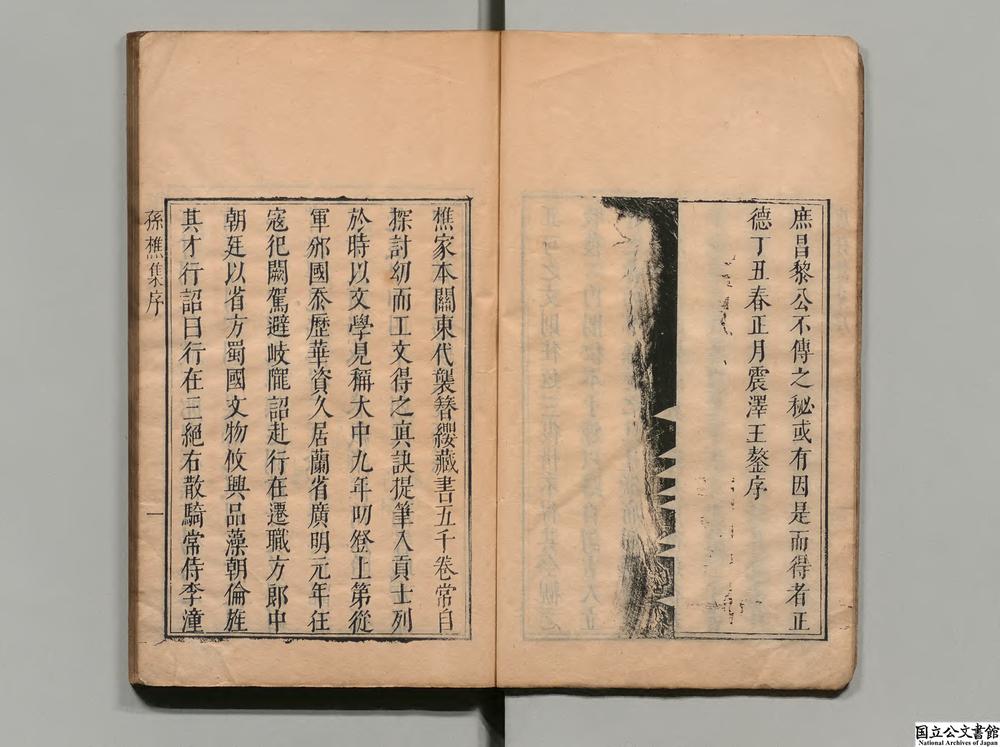 庶昌黎公不傳之秘或有因是而得者正
德丁丑春正月震澤王鏊序
樵家本關東代襲簪纓藏書五千卷常自
探討幼而工文得之真訣提筆入貢士列
於時以文學見稱大中九年叨登上第從
軍邠國忝歷華資久居蘭省廣明元年狂
寇犯闕駕避岐隴詔赴行在遷職方郎中
朝廷以省方蜀國文物攸興品藻朝倫旌
其才行詔曰行在三絕右散騎常侍李潼
孫樵集序
一
国立公文書館
National Archives of Japan